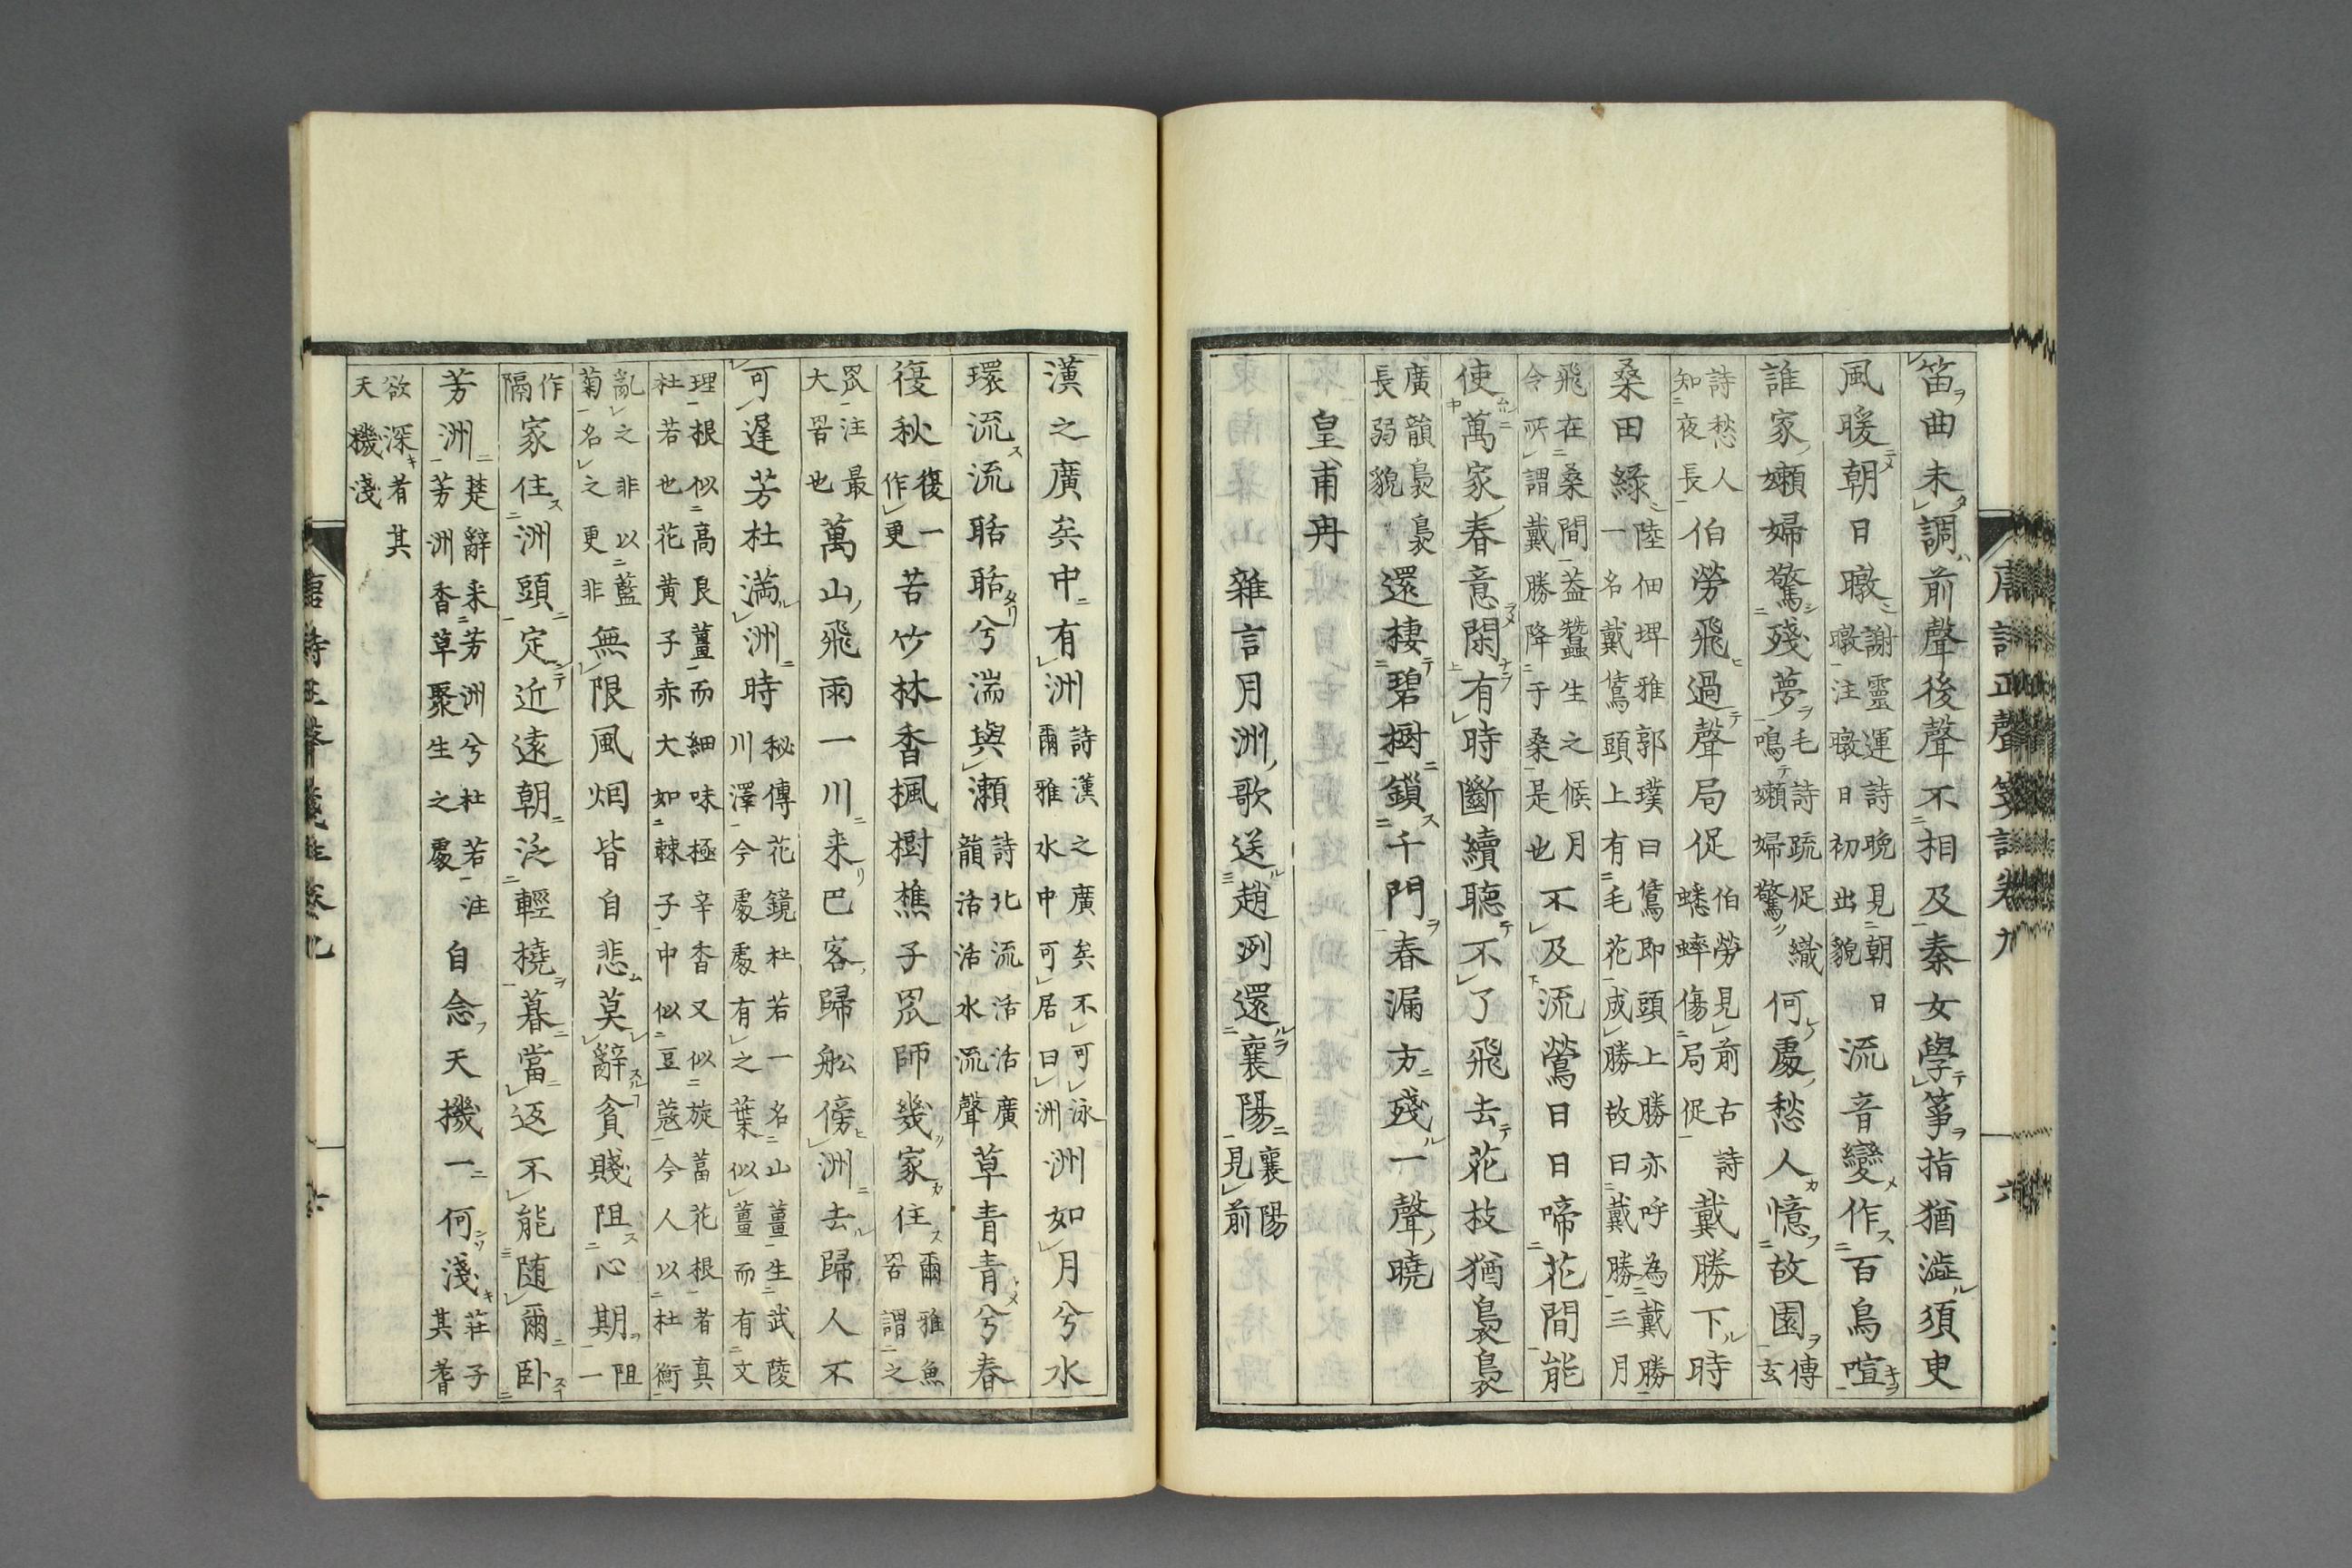 唐詩正聲箋註卷九 六
笛曲未調前聲後聲不相及秦女學箏指猶澁須臾
風暖朝日暾謝靈運詩晚見朝日暾注暾日初出貌流音變作百鳥喧
誰家嬾婦驚殘夢毛詩疏促織鳴嬾婦驚何處愁人憶故園傳玄
詩愁人知夜長伯勞飛過聲局促伯勞見前古詩蟋蟀傷局促戴勝下時
桑田綠陸佃埤雅郭璞曰鵀即頭上勝亦呼為戴勝一名戴鵀頭上有毛花成勝故曰戴勝三月
飛在桑間蓋蠶生之候月令所謂戴勝降于桑是也不及流鶯日日啼花間能
使萬家春意閑有時斷續聽不了飛去花枝猶裊裊
廣韻裊裊長弱貌還棲碧樹鎖千門春漏方殘一聲曉
皇甫冉
雜言月洲歌送趙冽還襄陽襄陽見前
漢之廣矣中有洲詩漢之廣矣不可泳爾雅水中可居曰洲洲如月兮水
環流流聒聒兮湍與瀨詩北流活活廣韻活活水流聲草青青兮春
復秋復一作更苦竹林香楓樹樵子罛師幾家住爾雅魚罟謂之
罛注最大罟也萬山飛雨一川来巴客歸舩傍洲去歸人不
可遲芳杜滿洲時秘傳花鏡杜若一名山薑生武陵川澤今處處有之葉似薑而有文
理根似高良薑而細味極辛香又似旋葍花根者真杜若也花黃子赤大如棘子中似豆蔻今人以杜衡
亂之非以藍菊名之更非無限風烟皆自悲莫辭貧賤阻心期阻一
作隔家住洲頭定近遠朝泛輕橈暮當返不能随爾卧
芳洲楚辭采芳洲兮杜若注芳洲香草聚生之處自念天機一何淺莊子其耆
欲深者其天機淺
唐詩正聲箋註卷九 六